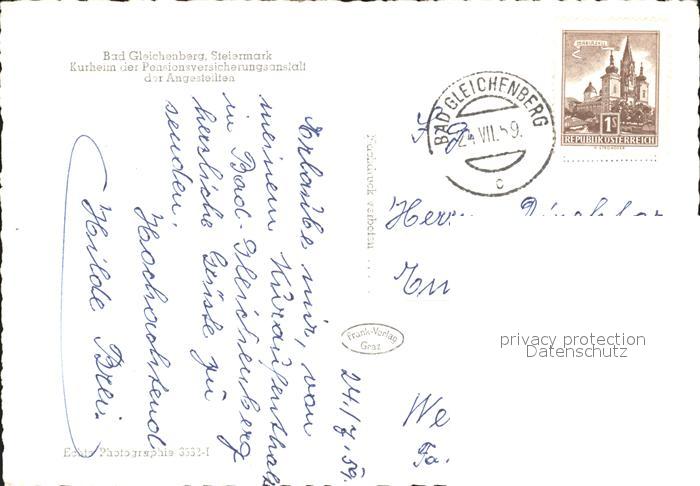 Bad Gleichenberg, Steiermark
Kurheim der Pensionsversicherungsanstalt
der Angestellten
24./7.59.
Erlaube mir, von
meinem Kuraufenthalt
in Bad-Gleichenberg
herzliche Grüße zu
senden.
Hochachtend
Hilde Brei.
Echte Photographie
Nachdruck verboten ...
Frank-Verlag
Graz
BAD GLEICHENBERG
24.VII.59.
c
MARIAZELL
1S
REPUBLIK ÖSTERREICH
Herr
We
Fa.
privacy protection
Datenschutz